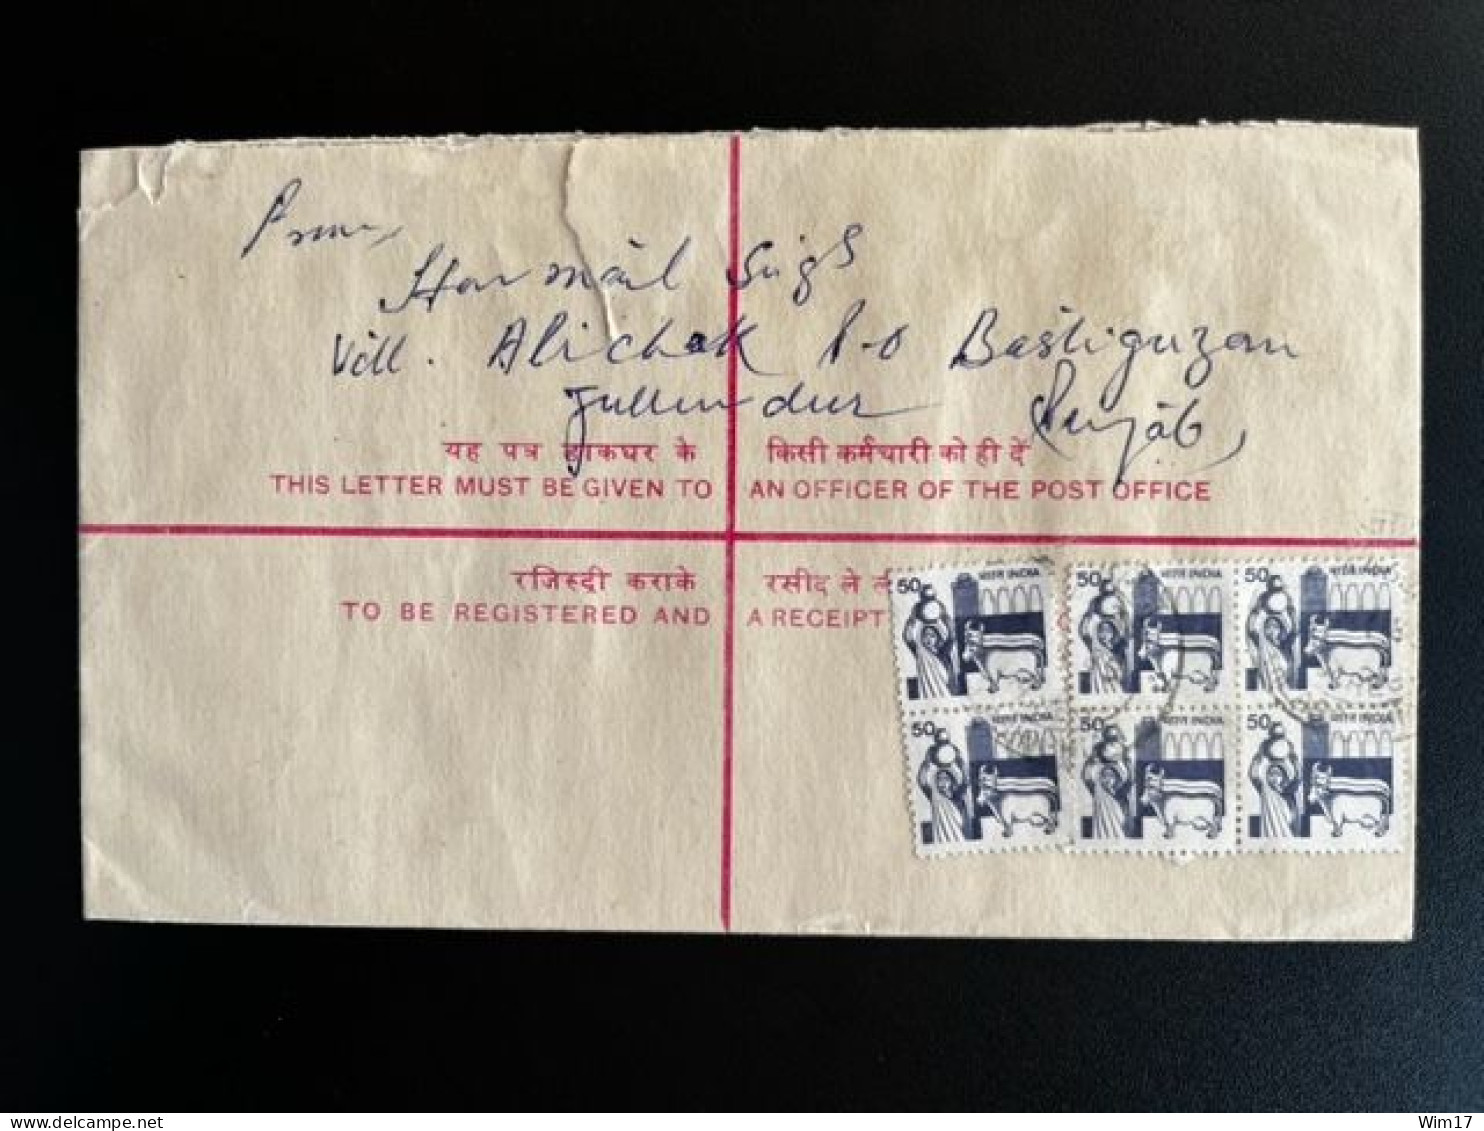 From,
Harmail Singh
Vill. Alichak P-O Bastiguzan
Jullundur Punjab,
यह पत्र डाकघर के किसी कर्मचारी को ही दें
THIS LETTER MUST BE GIVEN TO AN OFFICER OF THE POST OFFICE
रजिस्ट्री कराके रसीद ले
TO BE REGISTERED AND A RECEIPT
50 भारत INDIA 50 भारत INDIA 50 भारत INDIA
50 भारत INDIA 50 भारत INDIA 50 भारत INDIA
delcampe.net
Wim17